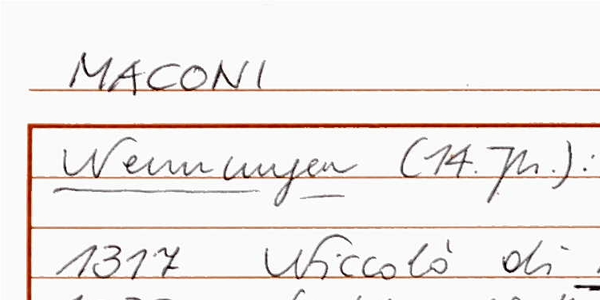 MACONI
Nennungen (14. Jh.):
1317 Niccolò di